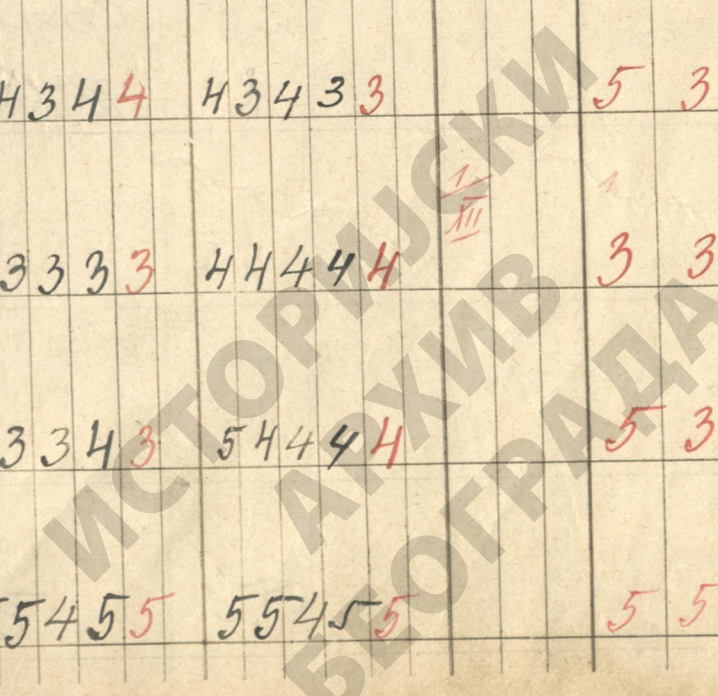 4 3 4 4 4 3 4 3 3 5 3
1 1
III
3 3 3 3 4 4 4 4 4 3 3
3 3 4 3 5 4 4 4 4 5 3
5 4 5 5 5 5 4 5 5 5 5
ИСТОРИЈСКИ
АРХИВ
БЕОГРАДА